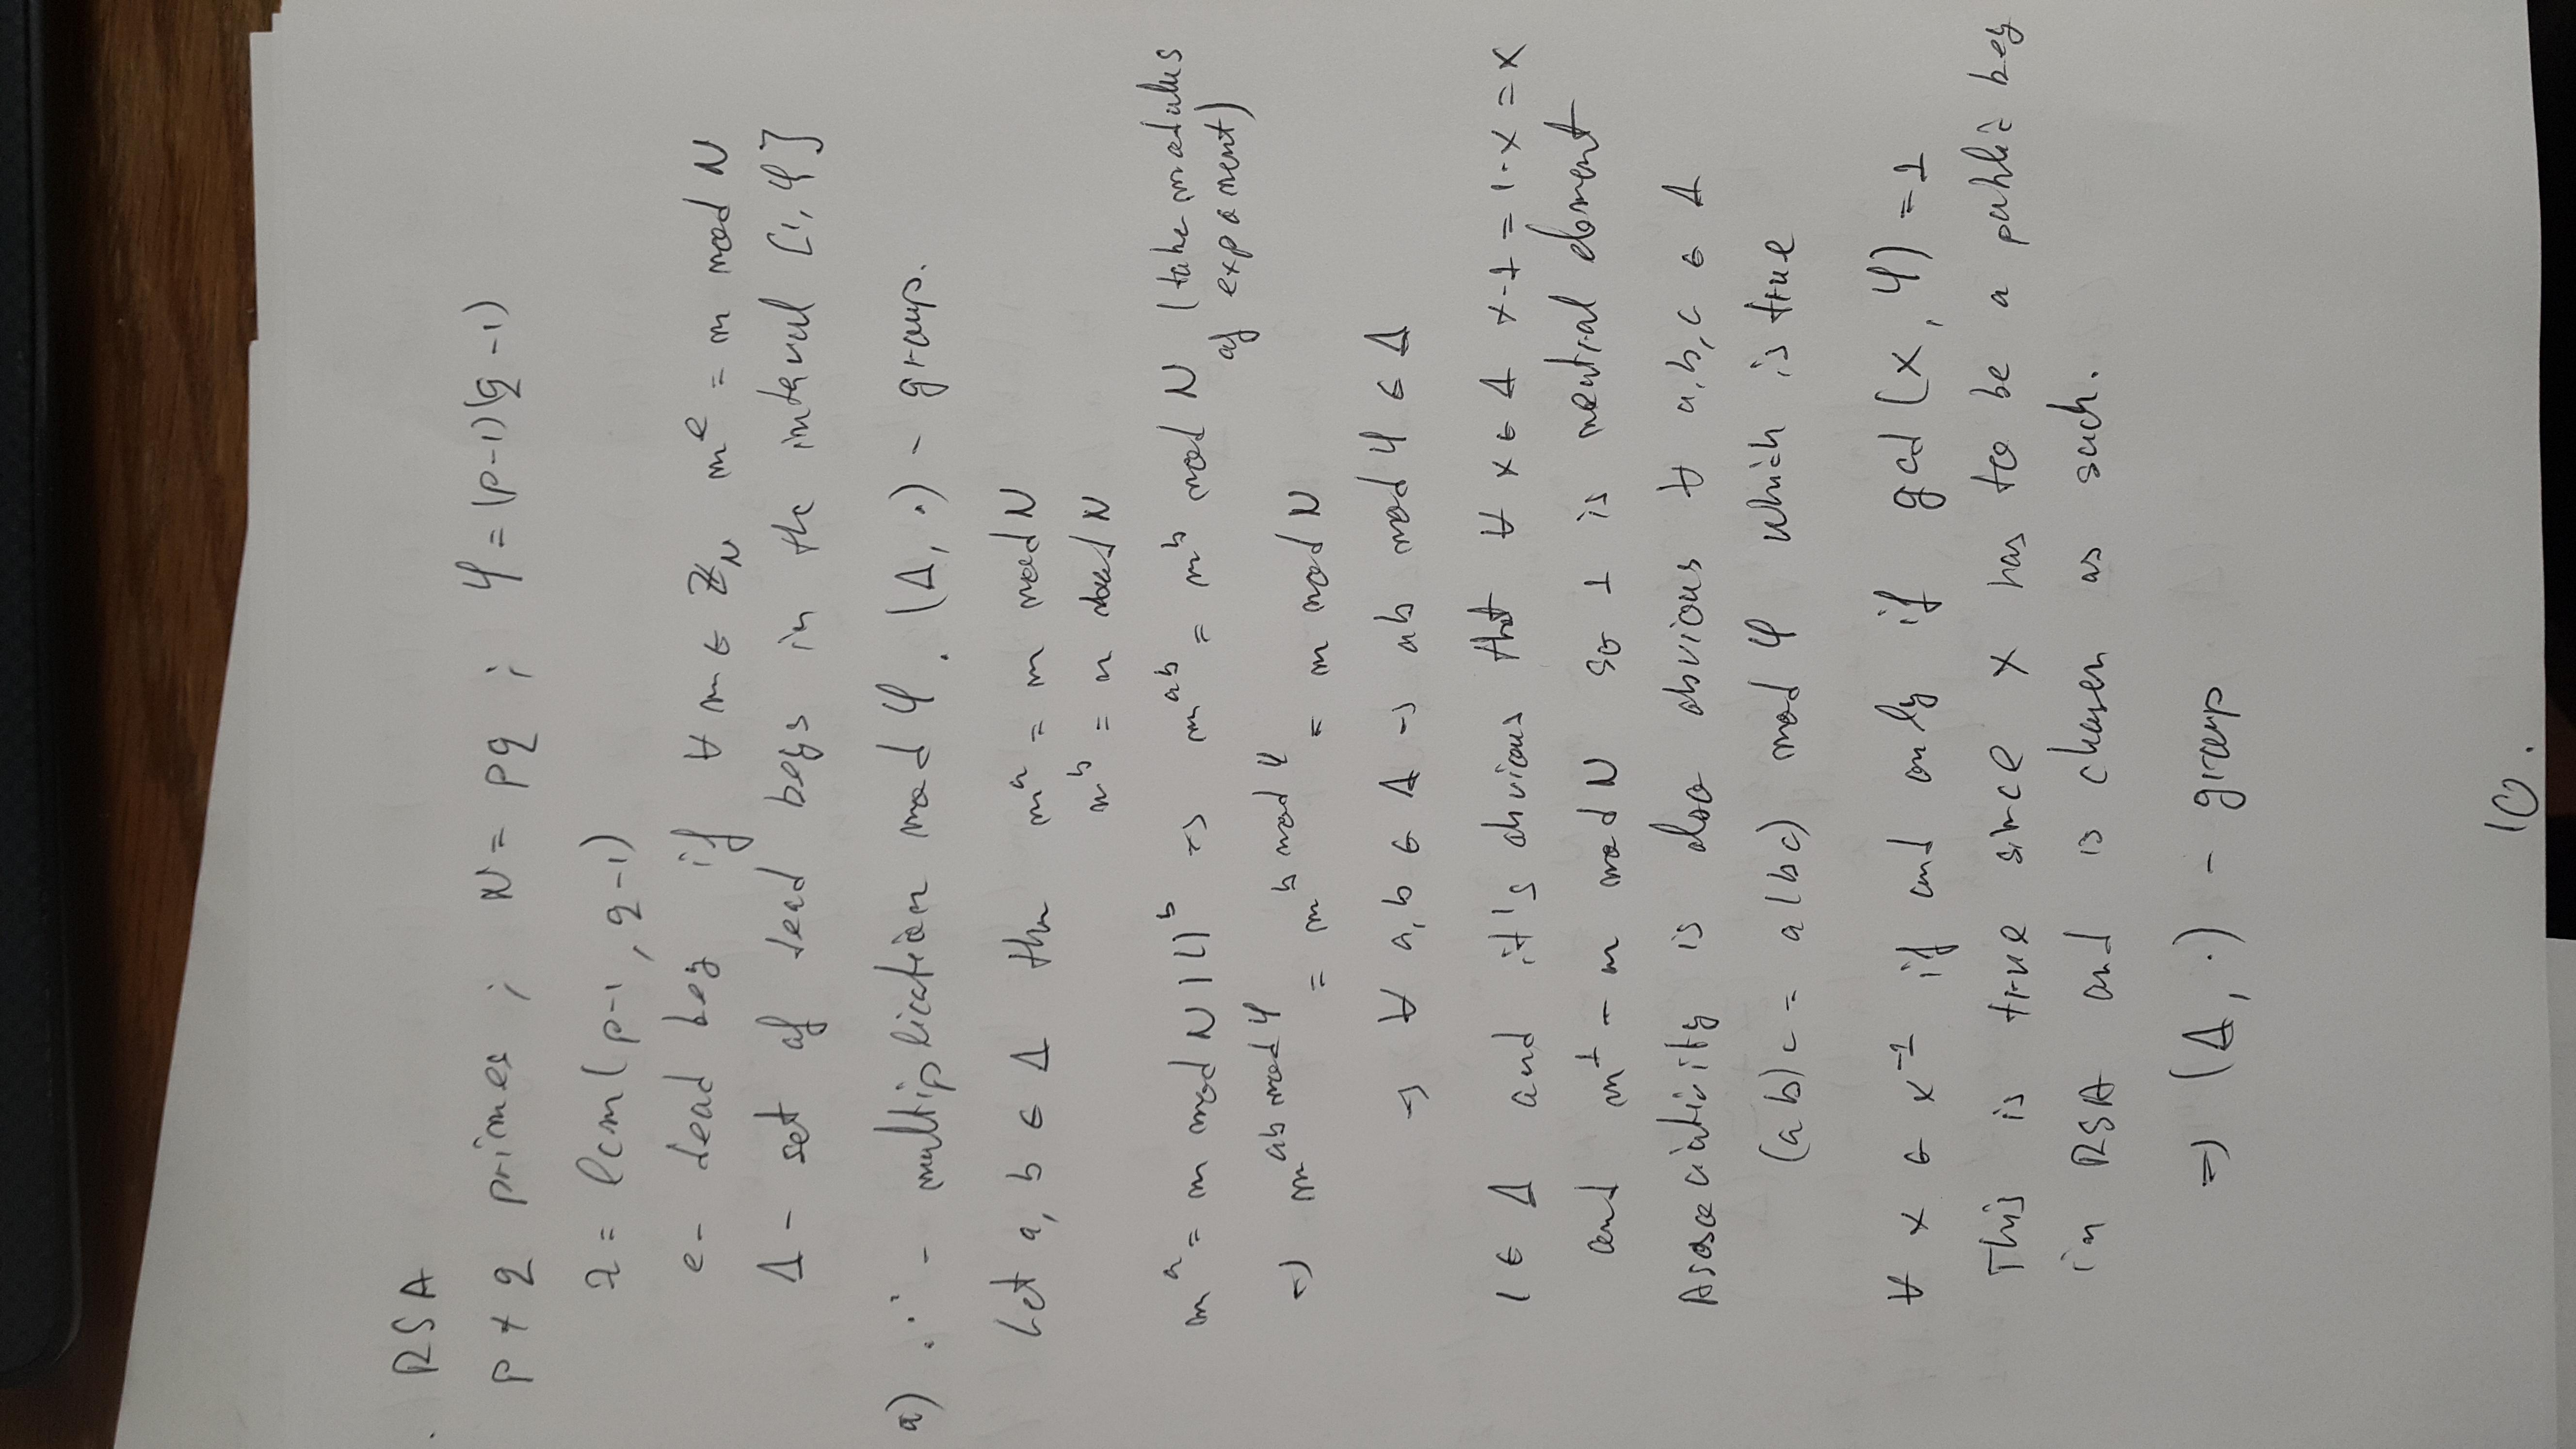 . RSA
p ≠ q primes ; N = pq ; φ = (p-1)(q-1)
λ = lcm(p-1, q-1)
e - dead key if ∀ m ∈ ℤ_N m^e = m mod N
Δ - set of dead keys in the interval [1, φ]
a) "·" - multiplication mod φ. (Δ, ·) - group.
Let a, b ∈ Δ then m^a = m mod N
m^b = m mod N
m^a = m mod N |()^b => m^ab = m^b mod N (take modulus
of exponent)
=> m^(ab mod φ) = m^(b mod φ) = m mod N
=> ∀ a, b ∈ Δ -> ab mod φ ∈ Δ
1 ∈ Δ and it's obvious that ∀ x ∈ Δ x·1 = 1·x = x
and m^1 = m mod N so 1 is neutral element
Associativity is also obvious ∀ a,b,c ∈ Δ
(ab)c = a(bc) mod φ which is true
∀ x ∈ x^-1 if and only if gcd (x, φ) = 1
This is true since x has to be a public key
in RSA and is chosen as such.
=> (Δ, ·) - group
10.